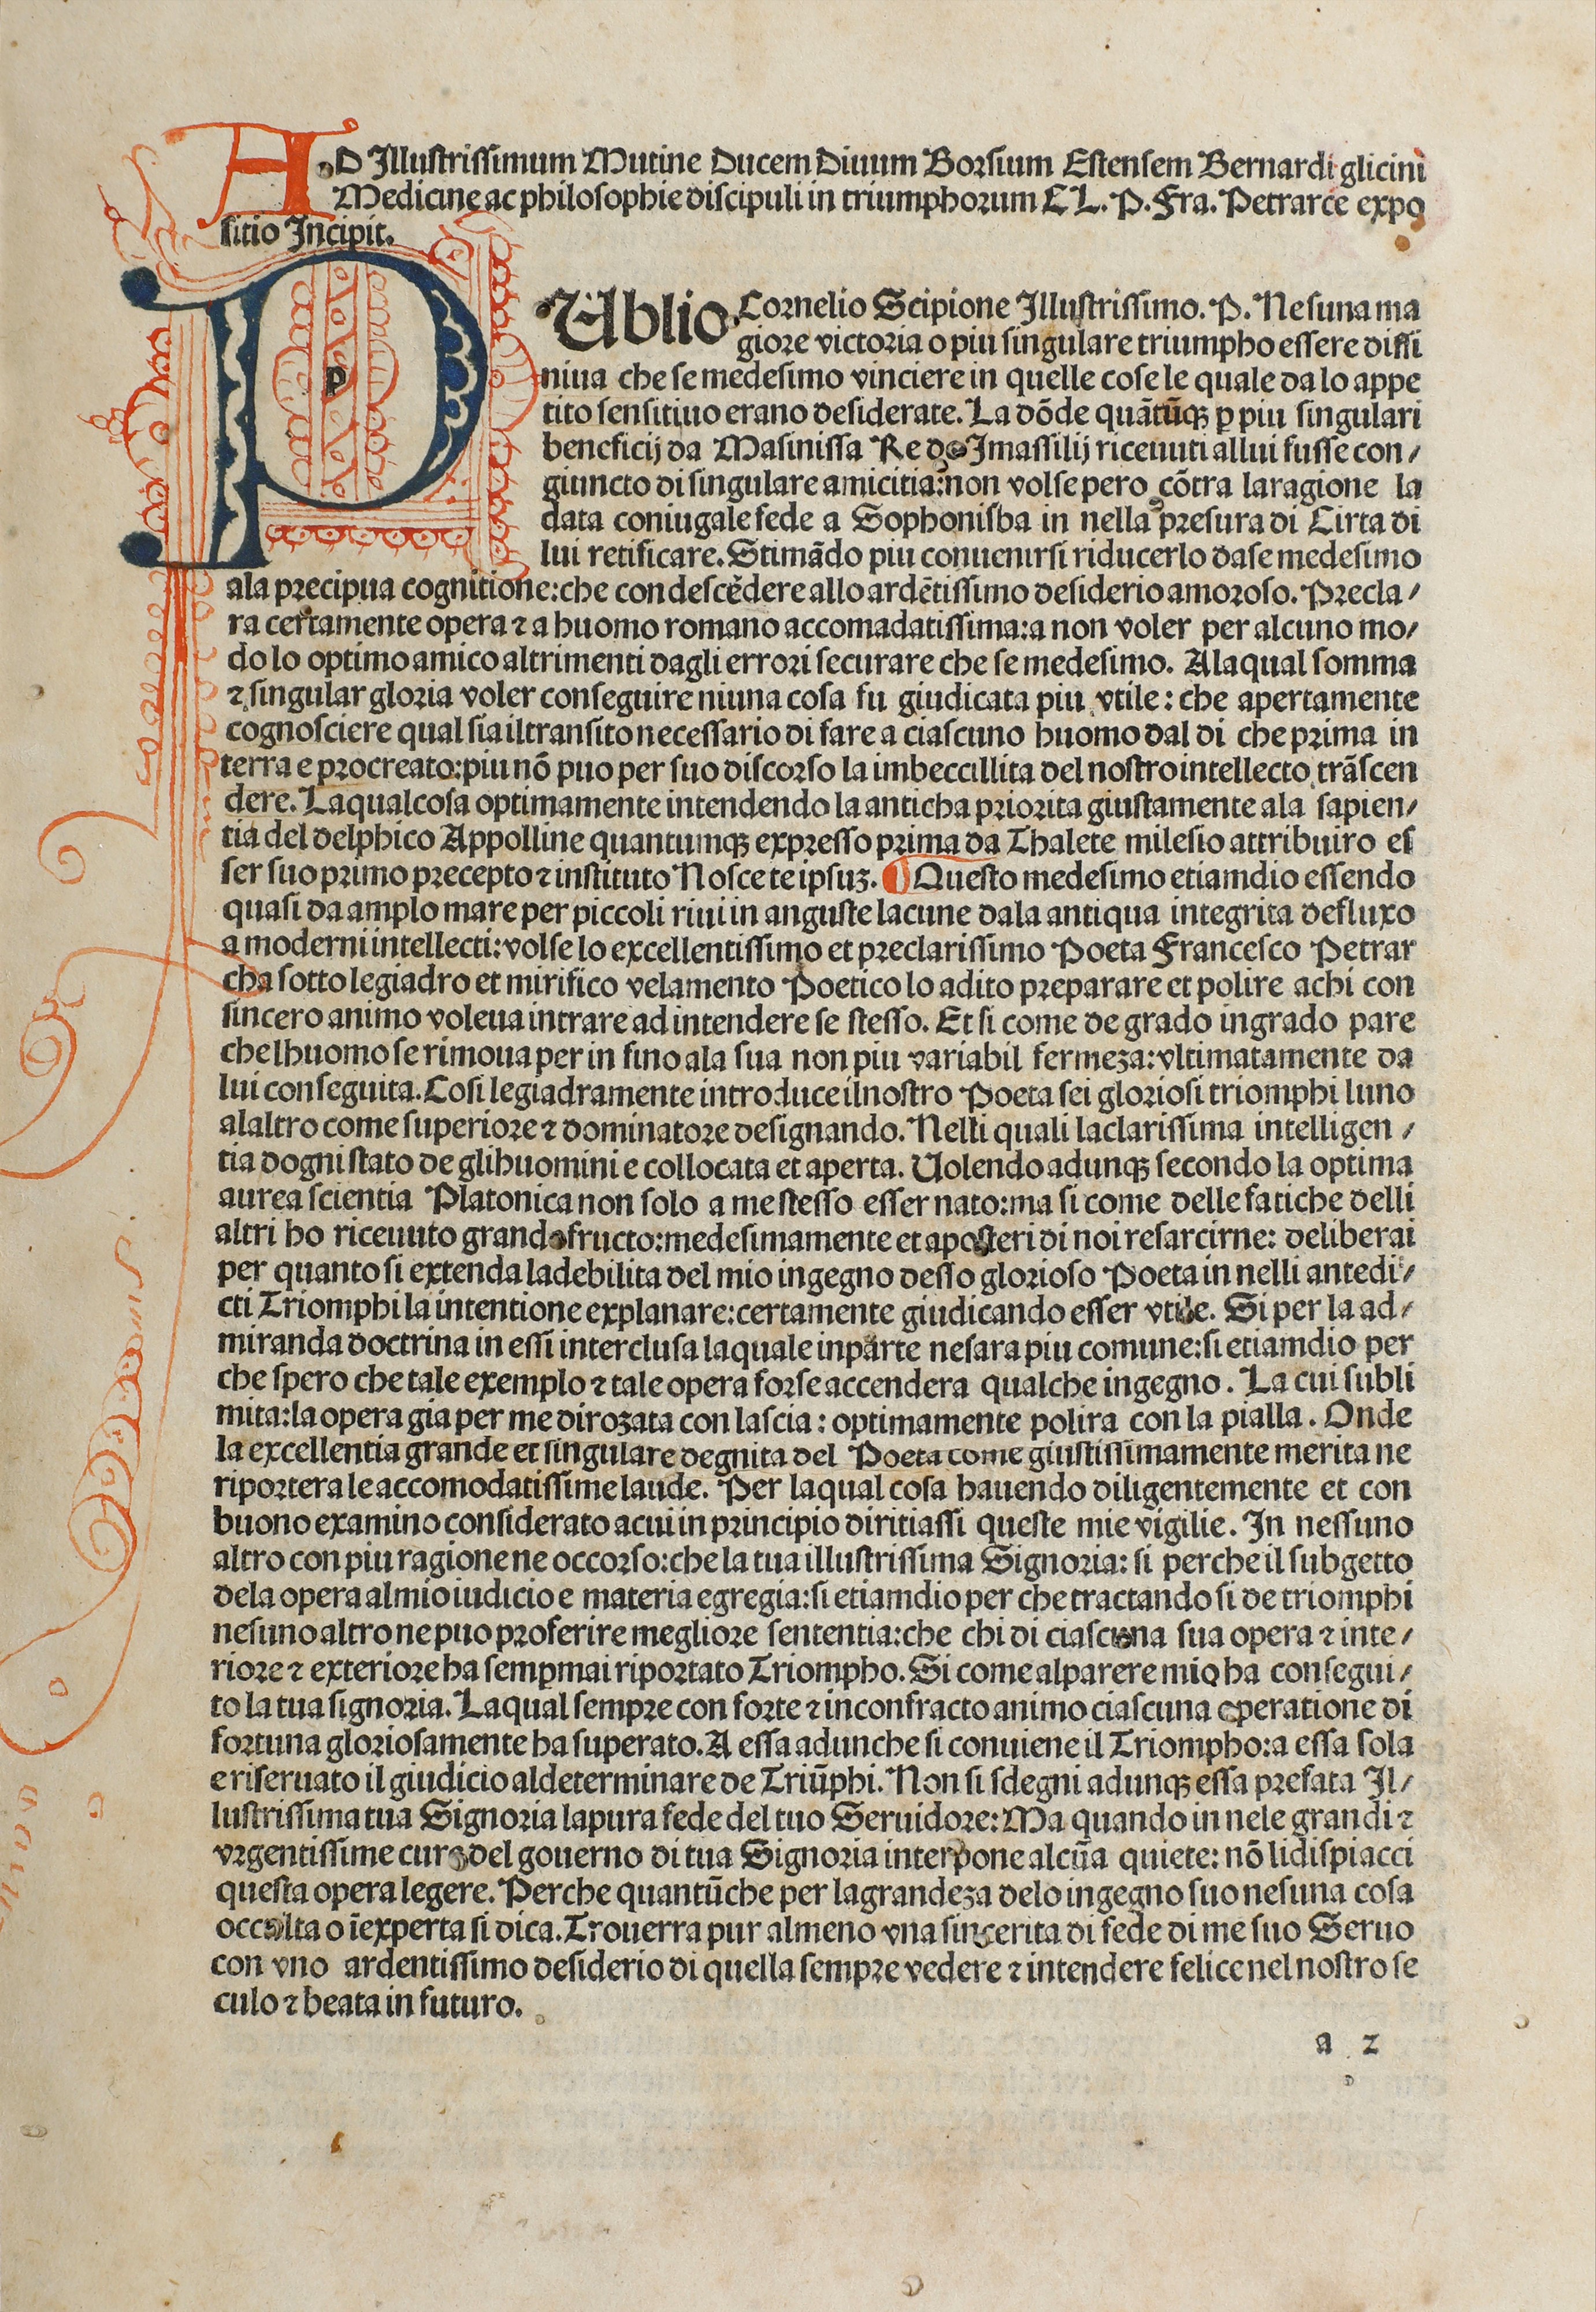 AD Illustrissimum Mutine Ducem Diuum Borsium Estensem Bernardi glicini
Medicine ac philosophie discipuli in triumphorum CL. P. Fra. Petrarce expo
sitio Incipit.
PUblio Cornelio Scipione Illustrissimo. P. Nesuna ma
giore victoria o piu singulare triumpho essere diffi
niua che se medesimo vinciere in quelle cose le quale da lo appe
tito sensitiuo erano desiderate. La dōde quātūqꝫ ꝑ piu singulari
beneficij da Masinissa Re de Imassilij riceuuti allui fusse con/
giuncto di singulare amicitia: non volse pero cōtra laragione la
data coniugale fede a Sophonisba in nella presura di Cirta di
lui retificare. Stimādo piu conuenirsi riducerlo dase medesimo
ala precipua cognitione: che condescēdere allo ardētissimo desiderio amoroso. Precla/
ra certamente opera ⁊ a huomo romano accomadatissima: a non voler per alcuno mo/
do lo optimo amico altrimenti dagli errori securare che se medesimo. Alaqual somma
⁊ singular gloria voler conseguire niuna cosa fu giudicata piu vtile: che apertamente
cognosciere qual sia iltransito necessario di fare a ciascuno huomo dal di che prima in
terra e procreato: piu nō puo per suo discorso la imbecillita del nostro intellecto trāscen
dere. Laqualcosa optimamente intendendo la anticha priorita giustamente ala sapien/
tia del delphico Appolline quantumqꝫ expresso prima da Thalete milesio attribuiro es
ser suo primo precepto ⁊ instituto Nosce te ipsuꝫ. ¶ Questo medesimo etiamdio essendo
quasi da amplo mare per piccoli riui in anguste lacune dala antiqua integrita defluxo
a moderni intellecti: volse lo excellentissimo et preclarissimo Poeta Francesco Petrar
cha sotto legiadro et mirifico velamento Poetico lo adito preparare et polire achi con
sincero animo voleua intrare ad intendere se stesso. Et si come de grado ingrado pare
che lhuomo se rimoua per in fino ala sua non piu variabil fermeza: vltimatamente da
lui conseguita. Cosi legiadramente introduce ilnostro Poeta sei gloriosi triomphi luno
alaltro come superiore ⁊ dominatore designando. Nelli quali laclarissima intelligen /
tia dogni stato de glihuomini e collocata et aperta. Uolendo adunqꝫ secondo la optima
aurea scientia Platonica non solo a me stesso esser nato: ma si come delle fatiche delli
altri ho riceuuto grande fructo: medesimamente et aposteri di noi resarcirne: deliberai
per quanto si extenda ladebilita del mio ingegno desso glorioso Poeta in nelli antedi/
cti Triomphi la intentione explanare: certamente giudicando esser vtile. Si per la ad/
miranda doctrina in essi interclusa laquale inparte nesara piu comune: si etiamdio per
che spero che tale exemplo ⁊ tale opera forse accendera qualche ingegno. La cui subli
mita: la opera gia per me dirozata con lascia: optimamente polira con la pialla. Onde
la excellentia grande et singulare degnita del Poeta come giustissimamente merita ne
riportera le accomodatissime laude. Per laqual cosa hauendo diligentemente et con
buono examino considerato acui in principio diritiassi queste mie vigilie. In nessuno
altro con piu ragione ne occorso: che la tua illustrissima Signoria: si perche il subgetto
dela opera almio iudicio e materia egregia: si etiamdio per che tractando si de triomphi
nesuno altro ne puo proferire megliore sententia: che chi di ciascuna sua opera ⁊ inte/
riore ⁊ exteriore ha sempmai riportato Triompho. Si come alparere mio ha consegui/
to la tua signoria. Laqual sempre con forte ⁊ inconfracto animo ciascuna operatione di
fortuna gloriosamente ha superato. A essa adunche si conuiene il Triompho: a essa sola
e riseruato il giudicio aldeterminare de Triūphi. Non si sdegni adunqꝫ essa prefata Il/
lustrissima tua Signoria lapura fede del tuo Seruidore: Ma quando in nele grandi ⁊
vrgentissime cure del gouerno di tua Signoria interpone alcūa quiete: nō lidispiacci
questa opera legere. Perche quantūche per lagrandeza delo ingegno suo nesuna cosa
occulta o īexperta si dica. Trouerra pur almeno vna sincerita di fede di me suo Seruo
con vno ardentissimo desiderio di quella sempre vedere ⁊ intendere felice nel nostro se
culo ⁊ beata in futuro.
a 2